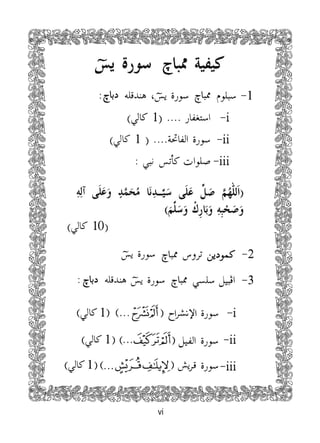 كيفية ممباچ سورة يسٓ
1- سبلوم ممباچ سورة يسٓ، هندقله دباچ:
i- استغفار .... (1 كالي)
ii- سورة الفاتحة.... (1 كالي)
iii- صلوات كأتس نبي :
(اَللّٰهُمَّ صَلِّ عَلَى سَيِّدِنَا مُحَمَّدٍ وَعَلَى آلِهِ
وَصَحْبِهِ وَبَارِكْ وَسَلِّمْ)
(10 كالي)
2- كمودين تروس ممباچ سورة يسٓ
3- اڤبيل سلسي ممباچ سورة يسٓ هندقله دباچ :
i- سورة الإنشراح (أَلَمْ نَشْرَحْ...) (1 كالي)
ii- سورة الفيل (أَلَمْ تَرَ كَيْفَ...) (1 كالي)
iii- سورة قريش (لِإِيلَٰفِ قُرَيْشٍ...) (1 كالي)
vi